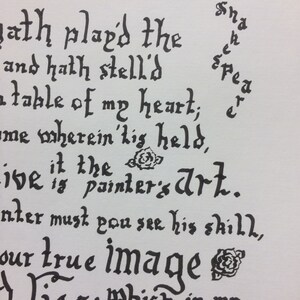 hath play'd the
and hath stell'd
table of my heart;
wherein 'tis held,
it the
is painter's art.
must you see his skill,
your true image
which in my
Shakespeare